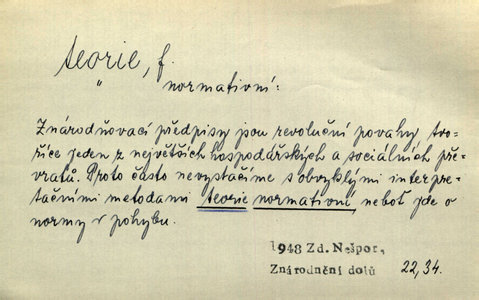 teorie, f.
" normativní:
Znárodňovací předpisy jsou revoluční povahy tvo-
říce jeden z největších hospodářských a sociálních pře-
vratů. Proto často nevystačíme s obvyklými interpre-
tačními metodami teorie normativní neboť jde o
normy v pohybu.
1948 Zd. Nešpor,
Znárodnění dolů 22,34.